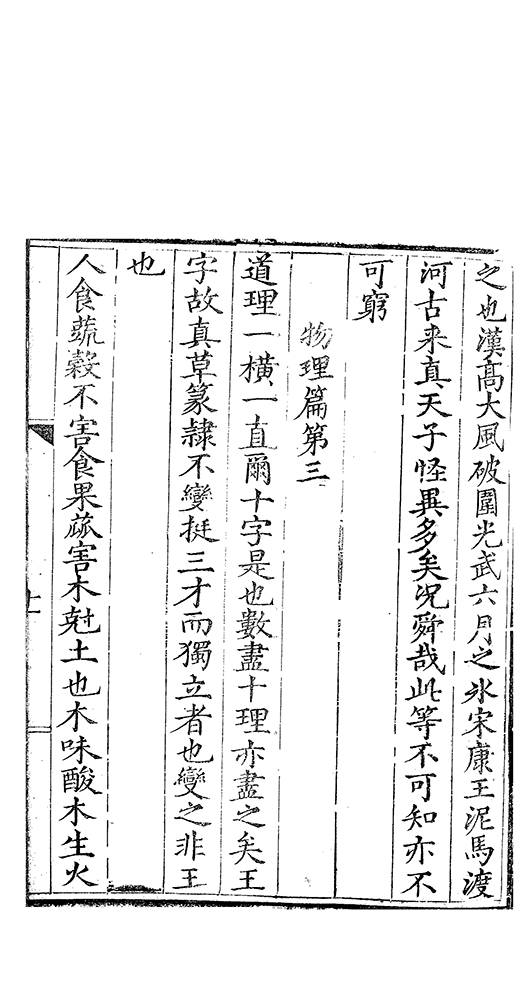 之也漢高大風破圍光武六月之氷宋康王泥馬渡
河古来真天子怪異多矣况舜哉此等不可知亦不
可窮
物理篇第三
道理一橫一直爾十字是也數盡十理亦盡之矣王
字故真草篆隷不變挺三才而獨立者也變之非王
也
人食蔬穀不害食果蓏害木尅土也木味酸木生火